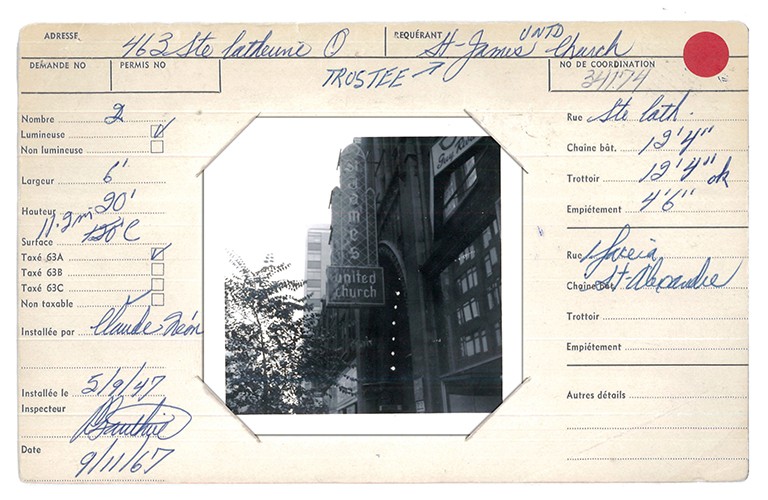 ADRESSE 463 Ste Catherine O REQUÉRANT St-James UNTD Church
DEMANDE NO PERMIS NO TRUSTEE → NO DE COORDINATION 34174
Nombre 2
Lumineuse ✓
Non lumineuse
Largeur 6'
Hauteur 20'
11.2m
Surface 120'C
Taxé 63A ✓
Taxé 63B
Taxé 63C
Non taxable ✓
Installée par Claude Néon
Installée le 5/9/47
Inspecteur
Date 9/11/67
St James
united
church
Rue Ste Cath.
Chaine bât. 12'4"
Trottoir 12'4" ok
Empiétement 4'6"
Rue
Chaine bât. St-Alexandre
Trottoir
Empiétement
Autres détails